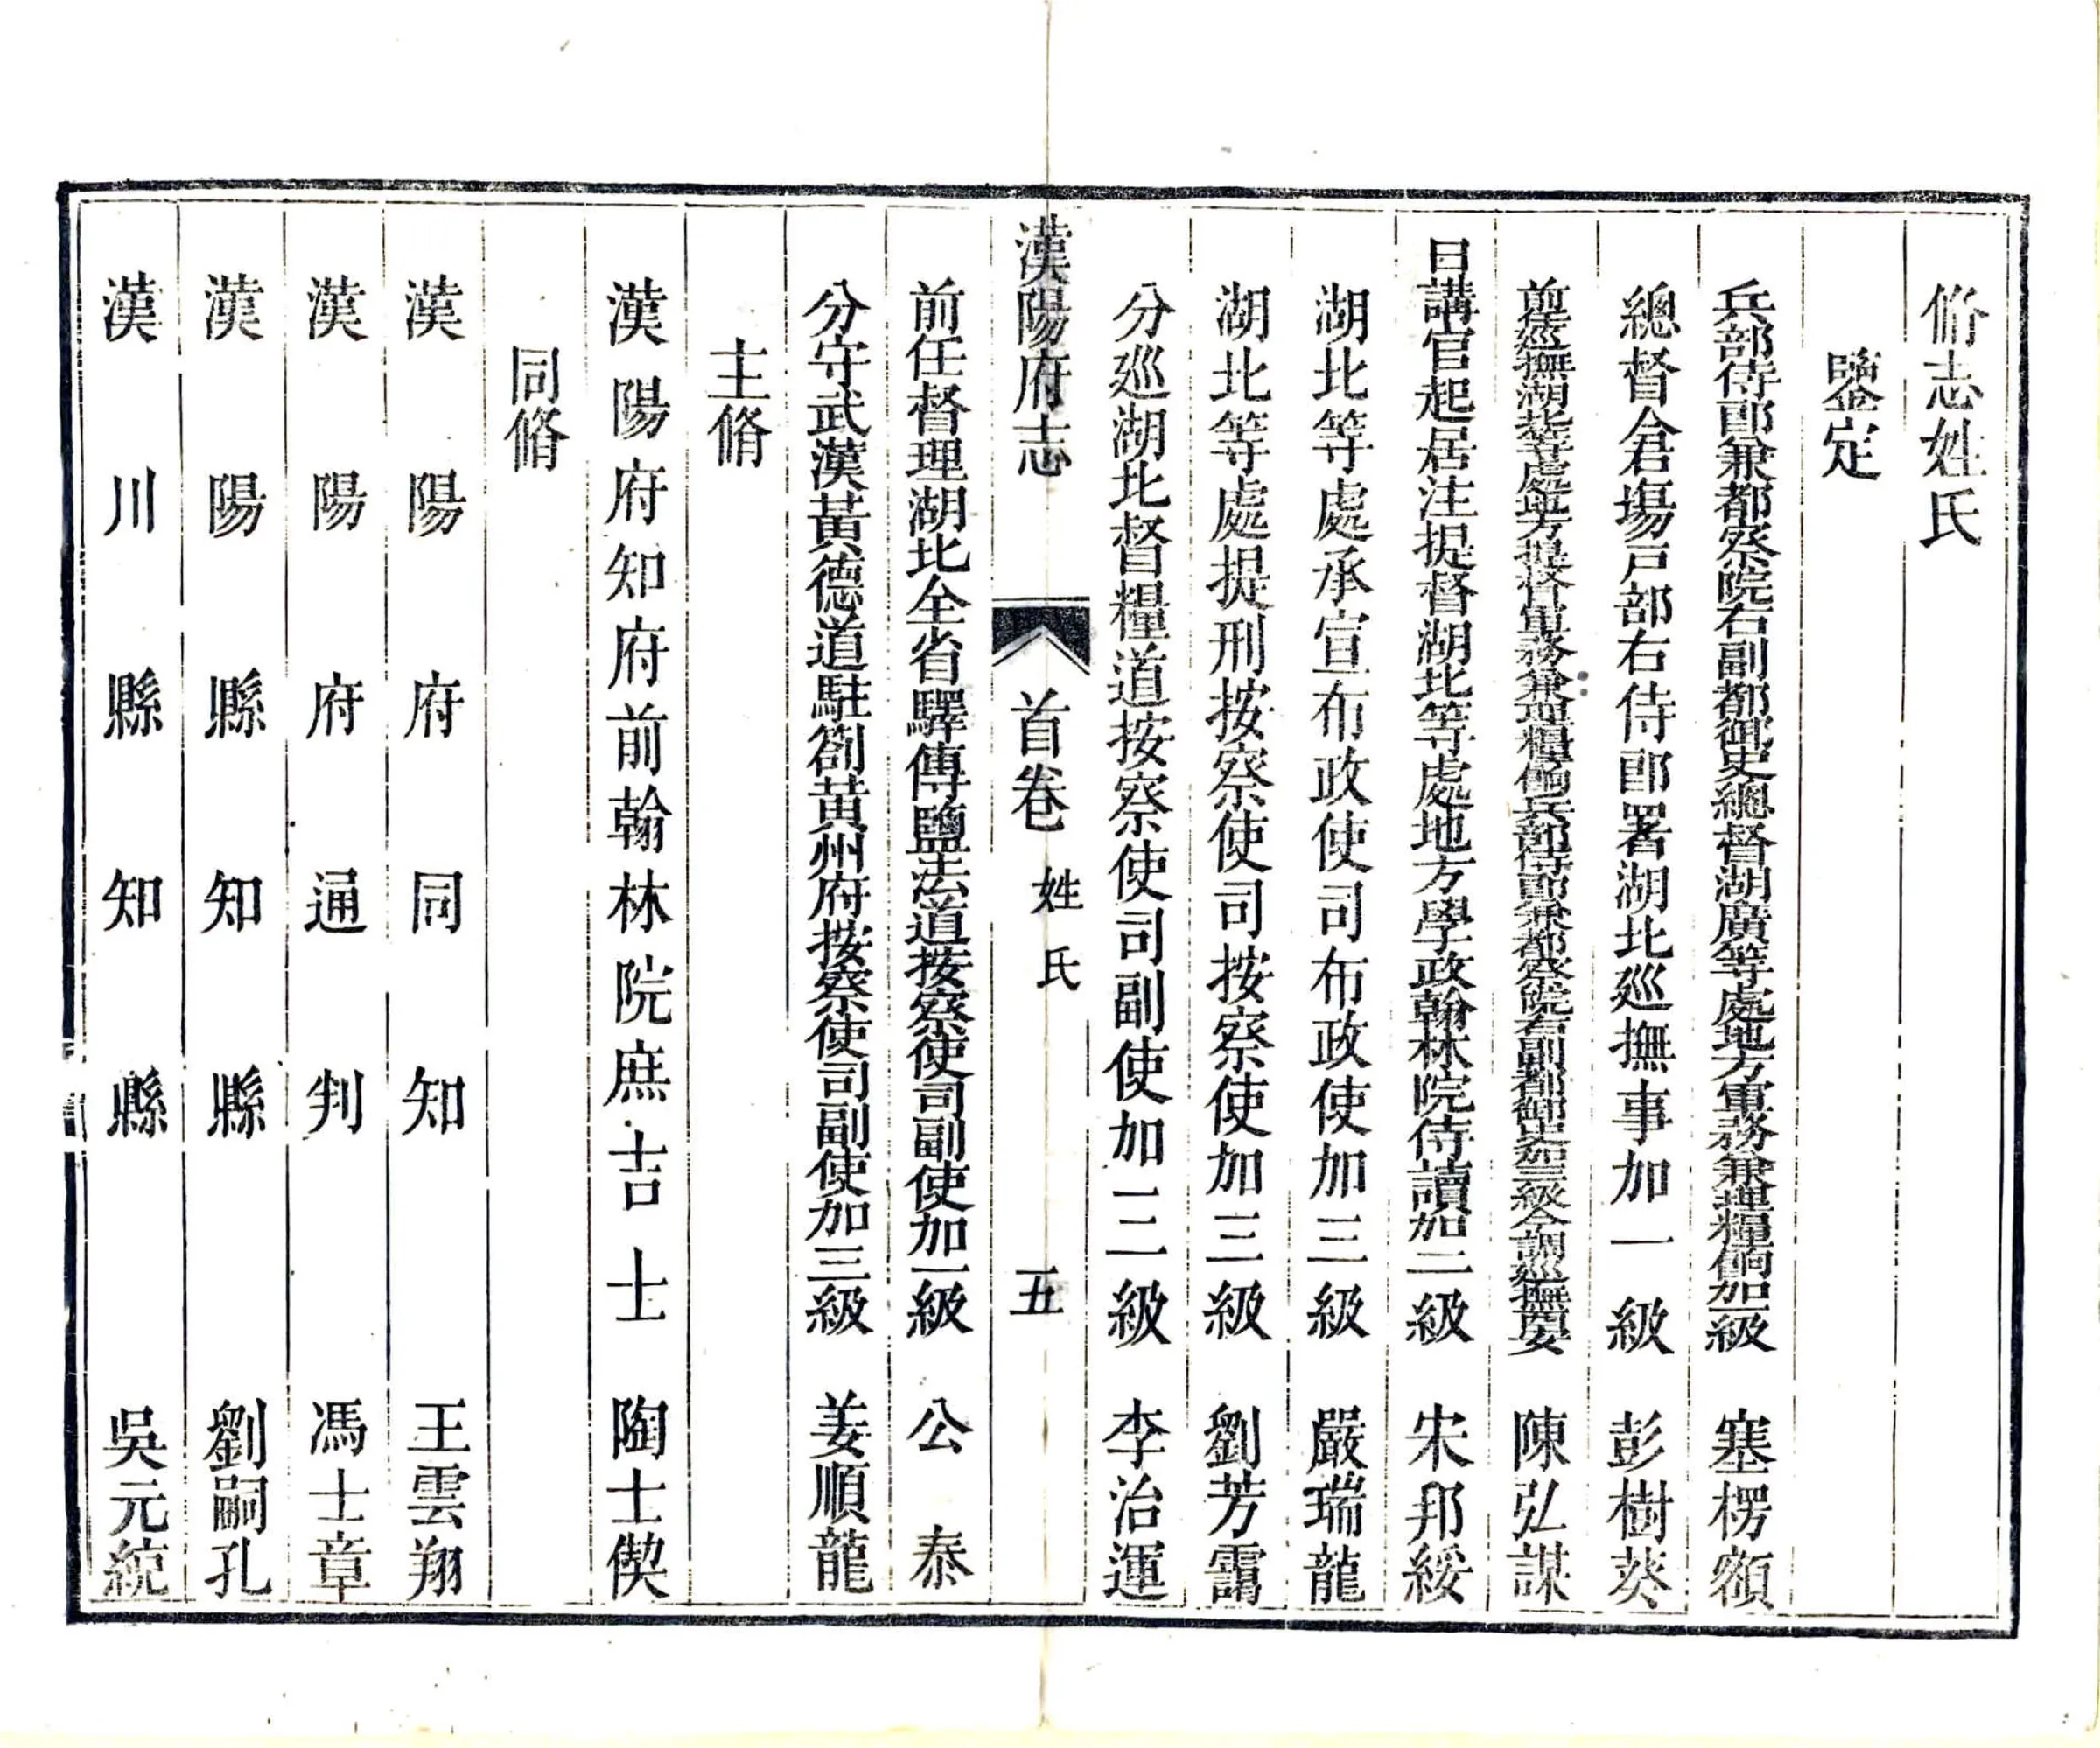 脩志姓氏
鑒定
兵部侍郎兼都察院右副都御史總督湖廣等處地方軍務兼理糧餉加一級　塞楞額
總督倉場戶部右侍郎署湖北巡撫事加一級　彭樹葵
前巡撫湖北等處地方提督軍務兼理糧餉兵部侍郎兼都察院右副都御史加三級今調巡撫安　陳弘謀
日講官起居注提督湖北等處地方學政翰林院侍讀加二級　宋邦綏
湖北等處承宣布政使司布政使加三級　嚴瑞龍
湖北等處提刑按察使司按察使加三級　劉芳靄
分巡湖北督糧道按察使司副使加二級　李治運
漢陽府志　首卷　姓氏　五
前任督理湖北全省驛傳鹽法道按察使司副使加一級　公泰
分守武漢黃德道駐劄黃州府按察使司副使加三級　姜順龍
主脩
漢陽府知府前翰林院庶吉士　陶士偰
同脩
漢陽府同知　王雲翔
漢陽府通判　馮士章
漢陽縣知縣　劉嗣孔
漢川縣知縣　吳元統